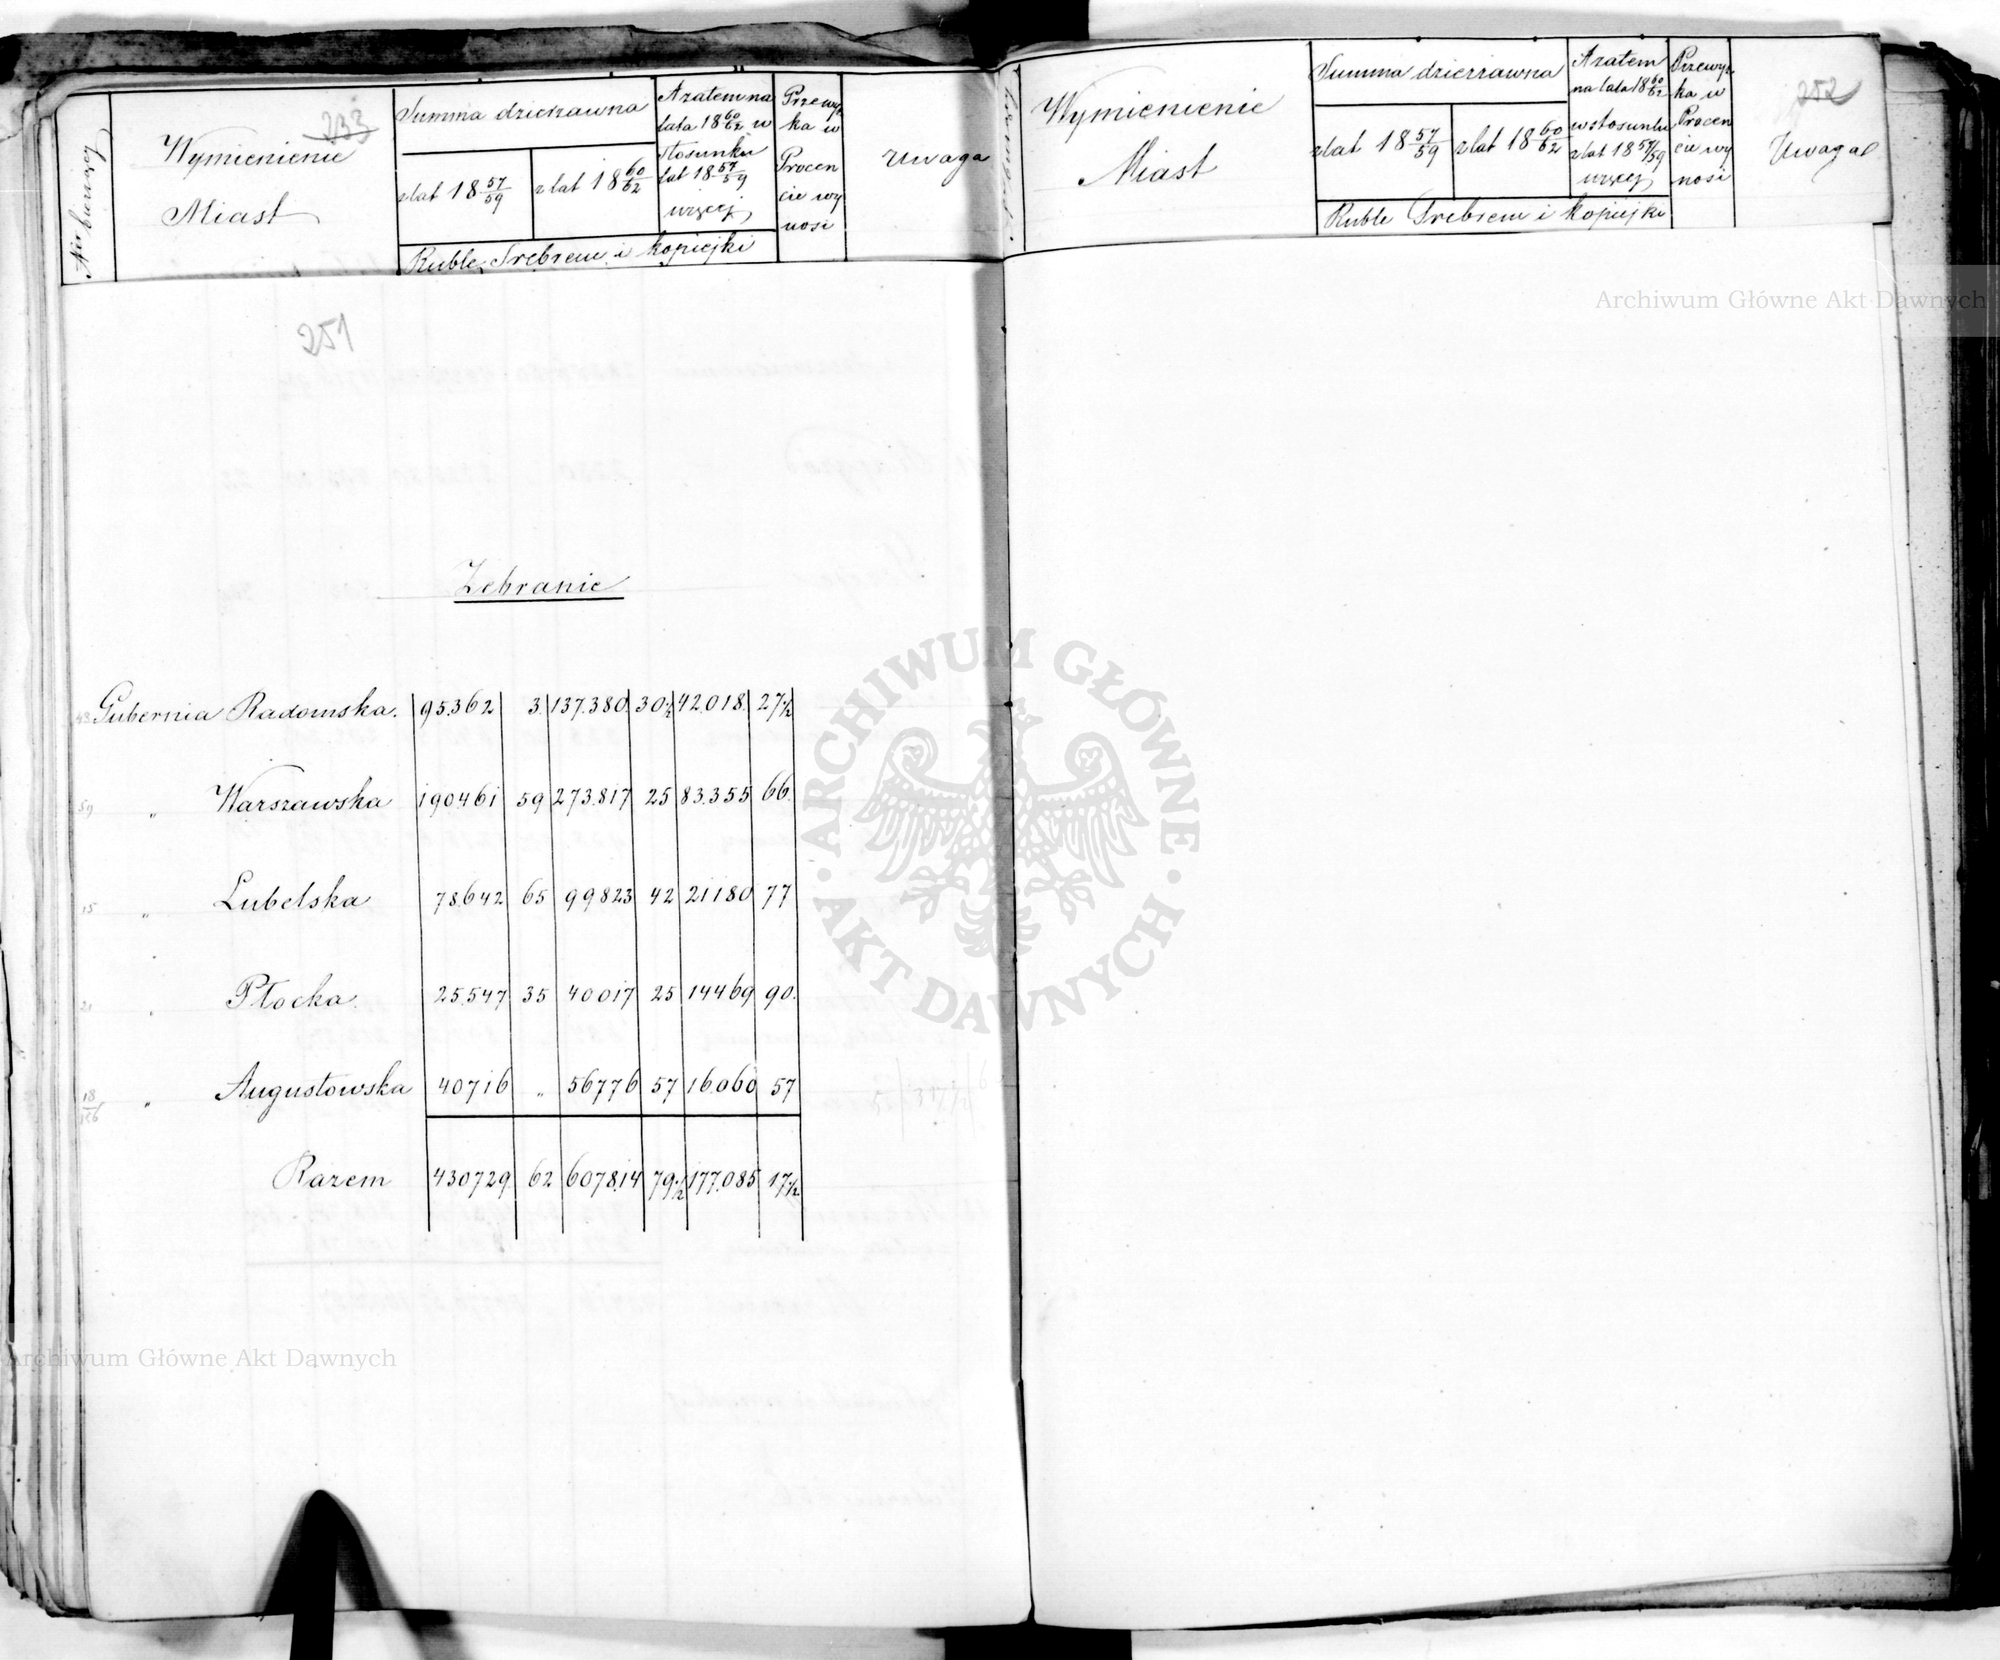 233
Nr bieżący
Wymienienie
Miast
Summa dzierżawna
z lat 18 57/59
z lat 18 60/62
A zatem na
lata 18 60/62 w
stosunku
lat 18 57/59
więcej
Ruble Srebrem i kopiejki
Przewyż
ka w
Procen
cie wy
nosi
Uwaga
251
Zebranie
43 Gubernia Radomska. 95.362 3. 137.380. 30 1/2 42.018. 27 1/2
59 " Warszawska 190461 59 273.817 25 83.355 66.
15 " Lubelska 78.642 65 99823 42 21180 77
21 " Płocka. 25.547 35 40017 25 14469 90.
18 " Augustowska 40716 " 56776 57 16.060 57
156
Razem 430729. 62 607814 79 1/2 177.085 17 1/2
252
Wymienienie
Miast
Summa dzierżawna
z lat 18 57/59
z lat 18 60/62
A zatem
na lata 18 60/62
w stosunku
z lat 18 57/59
więcej
Ruble Srebrem i kopiejki
Przewyż
ka w
Procen
cie wy
nosi
Uwaga
Archiwum Główne Akt Dawnych
ARCHIWUM GŁÓWNE
AKT DAWNYCH
Archiwum Główne Akt Dawnych